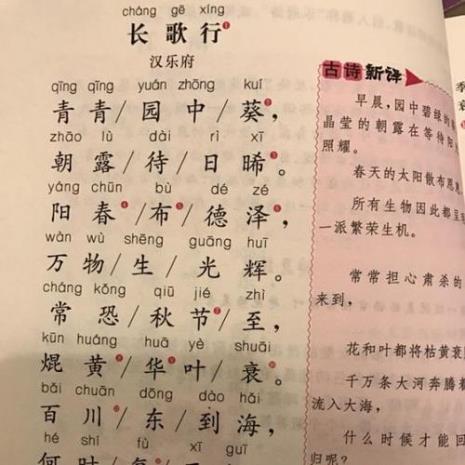 cháng gē xíng
长歌行
汉乐府
qīng qīng yuán zhōng kuí
青青/园中/葵,
zhāo lù dài rì xī
朝露/待/日晞。
yáng chūn bù dé zé
阳春/布/德泽,
wàn wù shēng guāng huī
万物/生/光辉。
cháng kǒng qiū jié zhì
常恐/秋节/至,
kūn huáng huā yè shuāi
焜黄/华叶/衰。
bǎi chuān dōng dào hǎi
百川/东/到海,
hé shí fù xī guī
何时/复/西
古诗新译
早晨,园中碧绿的
晶莹的朝露在等待阳
照耀。
春天的太阳散布恩
所有生物因此都
一派繁荣生机。
常常担心肃杀的
来到,
花和叶都将枯黄衰
千万条大河奔腾
流入大海,
什么时候才能回
归呢?